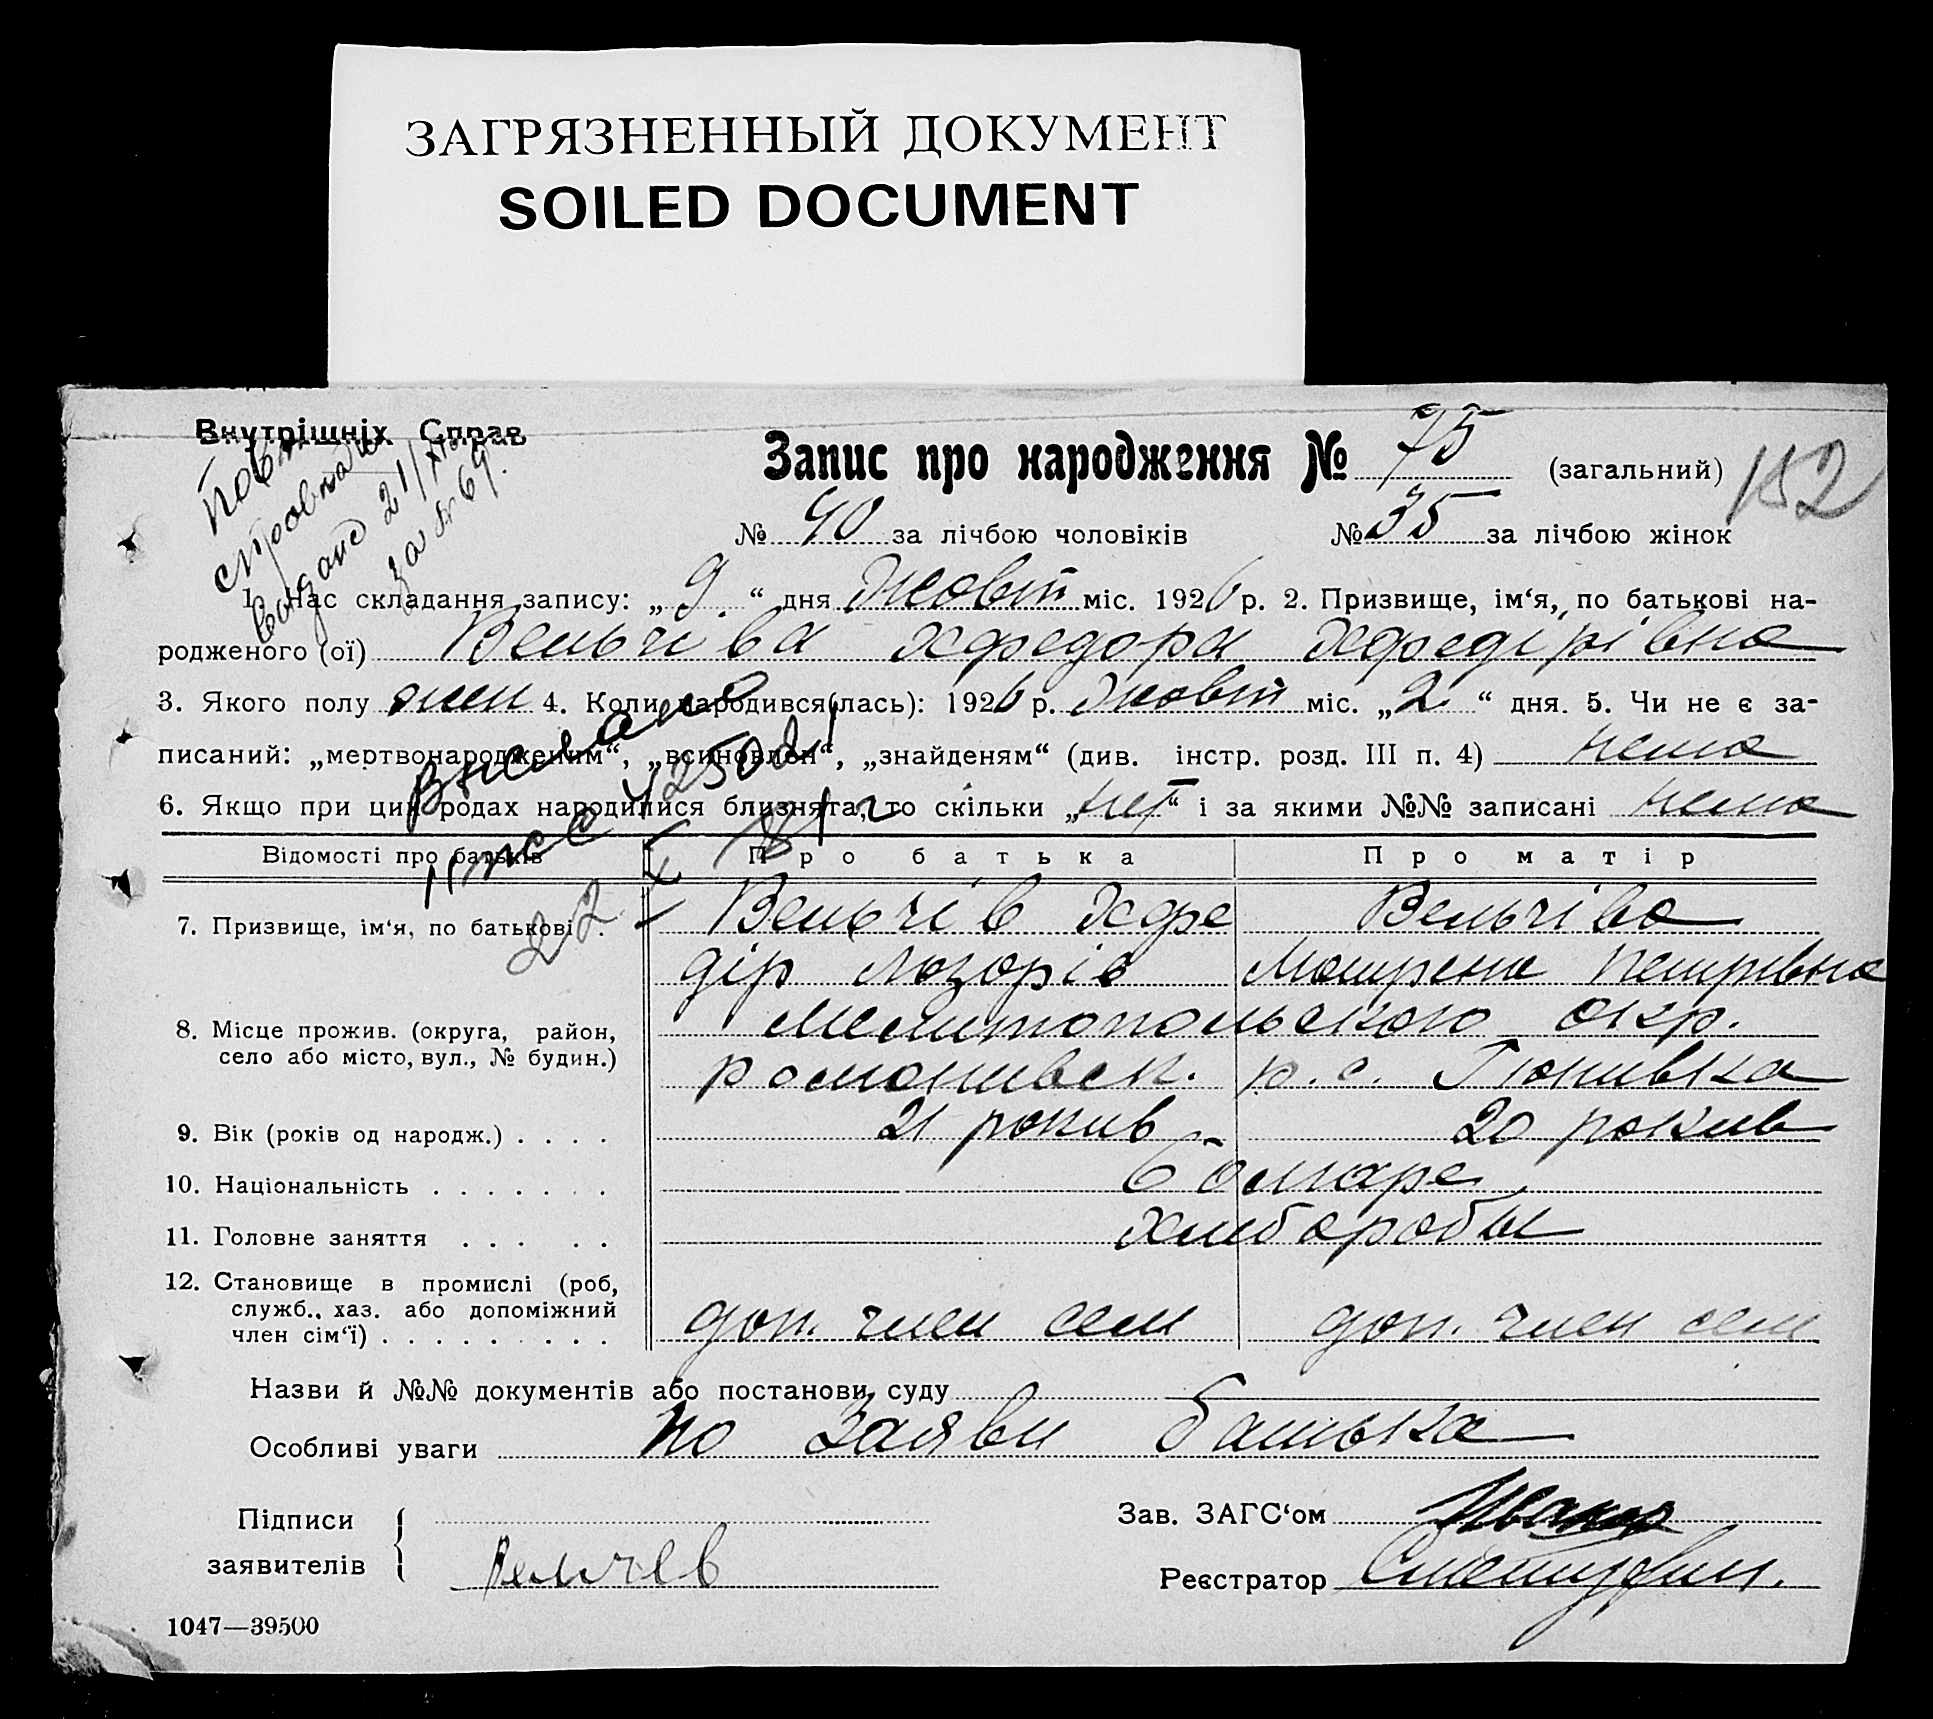 ЗАГРЯЗНЕННЫЙ ДОКУМЕНТ
SOILED DOCUMENT
Внутрішніх Справ
Запис про народження № 75 (загальний) 152
№ 40 за лічбою чоловіків № 35 за лічбою жінок
повт
видано 21/
за № 69.
1. Час складання запису: „ 9 “ дня Жовт міс. 1926 р. 2. Призвище, ім‘я, по батькові на-
родженого (ої) Вельчіва Хфедора Хфедірівна
3. Якого полу жен 4. Коли народився(лась): 1926 р. Жовт міс. „ 2 “ дня. 5. Чи не є за-
писаний: „мертвонародженим“, „всиновлен“, „знайденям“ (див. інстр. розд. III п. 4) нема
6. Якщо при цих родах народилися близнята, то скільки „нет“ і за якими №№ записані нема
выслано
22
Відомості про батьків Про батька Про матір
7. Призвище, ім‘я, по батькові. Вельчів Хфе Вельчіва
дір Лазорів Мотрена Петрівна
8. Місце прожив. (округа, район, Мелитопольского окр.
село або місто, вул., № будин.) романивск. р. с. Гюнивка
9. Вік (років од народж.) . . . . 21 рокив 20 рокив
10. Національність . . . . . . . болгаре
11. Головне заняття . . . . . хлибаробы
12. Становище в промислі (роб,
служб., хаз. або допоміжний
член сім‘ї) . . . . . . . . . доп. член сем доп. член сем
Назви й №№ документів або постанови суду
Особливі уваги по заяви батька
Підписи Зав. ЗАГС‘ом
заявителів Велчев Реєстратор
1047—39500